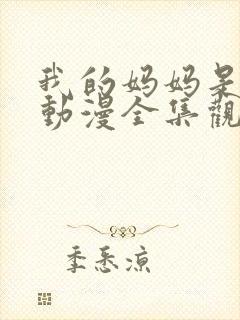 我的妈妈是
動漫全集觀
季悉凉